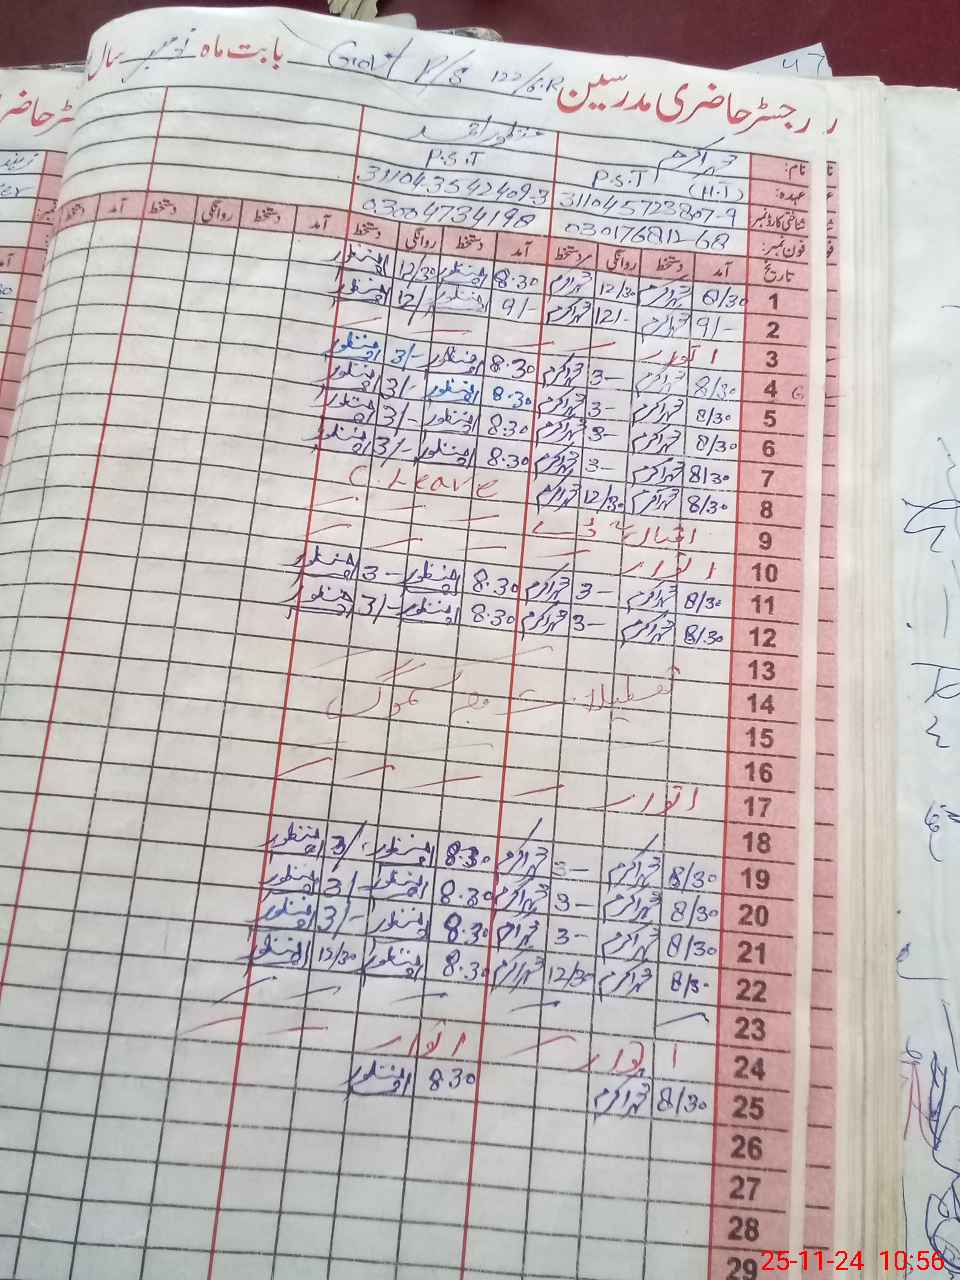 رجسٹر حاضری مدرسین Govt P/S 122/6.R بابت ماہ نومبر سال
نام: محمد اکرم منظور احمد
عہدہ: P.S.T (H.T) P.S.T
شناختی کارڈ نمبر: 311045723807-9 3110435424093
فون نمبر: 03017681268 03004734198
تاریخ آمد دستخط روانگی دستخط آمد دستخط روانگی دستخط آمد دستخط روانگی دستخط آمد دستخط
1 8/30 محمد اکرم 12/30 محمد اکرم 8.30 منظور احمد 12/30 منظور احمد
2 9/- محمد اکرم 12/- محمد اکرم 9/- منظور احمد 12/- منظور احمد
3 اتوار
4 8/30 محمد اکرم 3- محمد اکرم 8.30 منظور احمد 3/- منظور احمد
5 8/30 محمد اکرم 3- محمد اکرم 8.30 منظور احمد 3/- منظور احمد
6 8/30 محمد اکرم 3- محمد اکرم 8.30 منظور احمد 3/- منظور احمد
7 8/30 محمد اکرم 3- محمد اکرم 8.30 منظور احمد 3/- منظور احمد
8 8/30 محمد اکرم 12/30 محمد اکرم C.Leave
9 اقبال ڈے
10 اتوار
11 8/30 محمد اکرم 3- محمد اکرم 8.30 منظور احمد 3- منظور احمد
12 8/30 محمد اکرم 3- محمد اکرم 8.30 منظور احمد 3/- منظور احمد
13
14 تعطیلات بوجہ سموگ
15
16
17 اتوار
18
19 8/30 محمد اکرم 3- محمد اکرم 8.30 منظور احمد 3/- منظور احمد
20 8/30 محمد اکرم 3- محمد اکرم 8.30 منظور احمد 3/- منظور احمد
21 8/30 محمد اکرم 3- محمد اکرم 8.30 منظور احمد 3/- منظور احمد
22 8/30 محمد اکرم 12/30 محمد اکرم 8.30 منظور احمد 12/30 منظور احمد
23
24 اتوار اتوار
25 8/30 محمد اکرم 830 منظور احمد
26
27
28
29
25-11-24 10:56